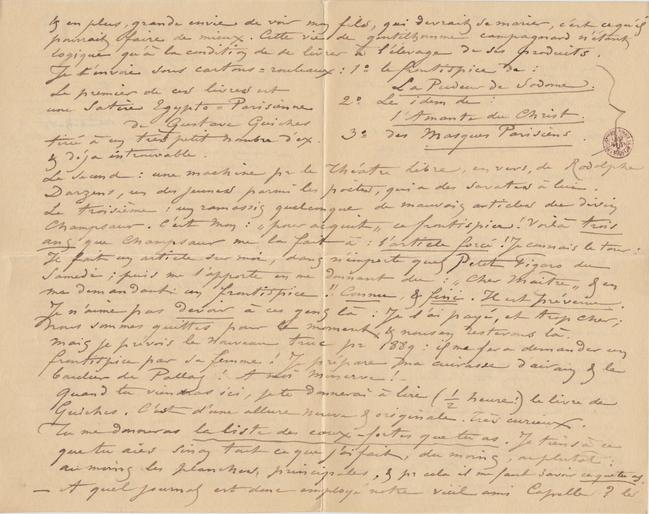 & en plus, grande envie de voir mon fils, qui devrait se marier, c'est ce qu'il
pourrait faire de mieux. Cette vie de gentilhomme campagnard n'étant
logique qu'à la condition de se livrer à l'élevage de ses produits.
Je t'envoie sous cartons-rouleaux : 1º le frontispice de :
La Pudeur de Sodome.
Le premier de ces livres est
2º Le idem de :
une Satire Egypto-Parisienne
l'Amante du Christ.
de Gustave Guiches
3º des Masques Parisiens.
tiré à un très petit nombre d'ex.
& déja introuvable.
Le Second : une machine pr le Théâtre Libre, en vers, de Rodolphe
Darzens, un des jeunes parmi les poètes, qui a des savates à lui.
Le troisième : un ramassis quelconque de mauvais articles du divin
Champsaur. C'est mon : "pour acquit" ce frontispice ! Voilà trois
ans que Champsaur me la fait à : l'article forcé ! Je connais le tour :
Il fait un article sur moi, dans n'importe quel Petit Figaro du
Samedi ; puis me l'apporte en me donnant du : "Cher Maître" & en
me demandant un frontispice !! Connu, & fini. Il est prévenu.
Je n'aime pas devoir à ces gens là : Je l'ai payé, et trop cher ;
nous sommes quittes pour le moment & nous en resterons là.
mais je prévois le nouveau truc pr 1889 : il me fera demander un
frontispice par sa femme ! Je prépare ma cuirasse d'airain & le
bouclier de Pallas. A moi Minerve !
Quand tu viendras ici, je te donnerai à lire (1/2 heure) le livre de
Guiches. C'est d'une allure neuve & originale. Très curieux.
Tu me donneras la liste des eaux-fortes que tu as. Je tiens à ce
que tu aies sinon tout ce que j'ai fait, du moins, ou plutôt :
au moins les planches principales, & pr cela il me faut savoir ce que tu as.
— A quel journal est donc employé notre vieil ami Capelle ? le